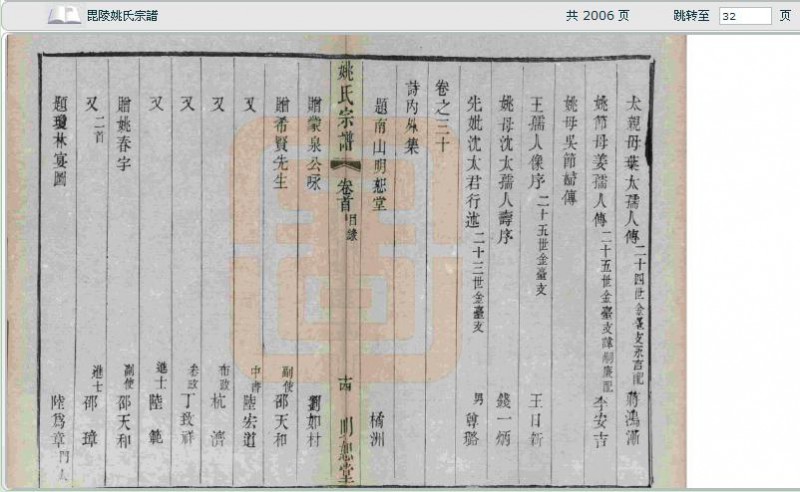 毘陵姚氏宗譜
共 2006 页
跳转至 32 页
太親母葉太孺人傳 二十四世金臺支 蔣鴻漸
姚節母姜孺人傳 二十五世金臺支 李安吉
姚母吳節婦傳
王孺人像序 二十五世金臺支 王日新
姚母沈太孺人壽序 錢一炳
先妣沈太君行述 二十三世金臺支 男
卷之三十
詩內外集
題南山明恕堂 橘洲
姚氏宗譜 卷首 目錄 十四 明恕堂
贈蒙泉公咏 劉如村
贈希賢先生 副使 邵天和
又 中書 陸宏道
又 布政 杭濟
又 參政 丁致祥
又 進士 陸範
贈姚春宇 副使 邵天和
又 二首 進士 邵璋
題瓊林宴圖 陸爲章